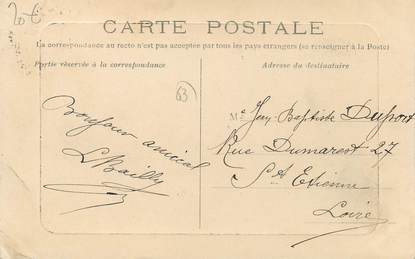 20€
CARTE POSTALE
La correspondance au recto n'est pas acceptée par tous les pays étrangers (se renseigner à la Poste)
Partie réservée à la correspondance
Adresse du destinataire
63
Bonjour amical
L Bailly
M Jean Baptiste Dupont
Rue Dumarest 27
St Etienne
Loire